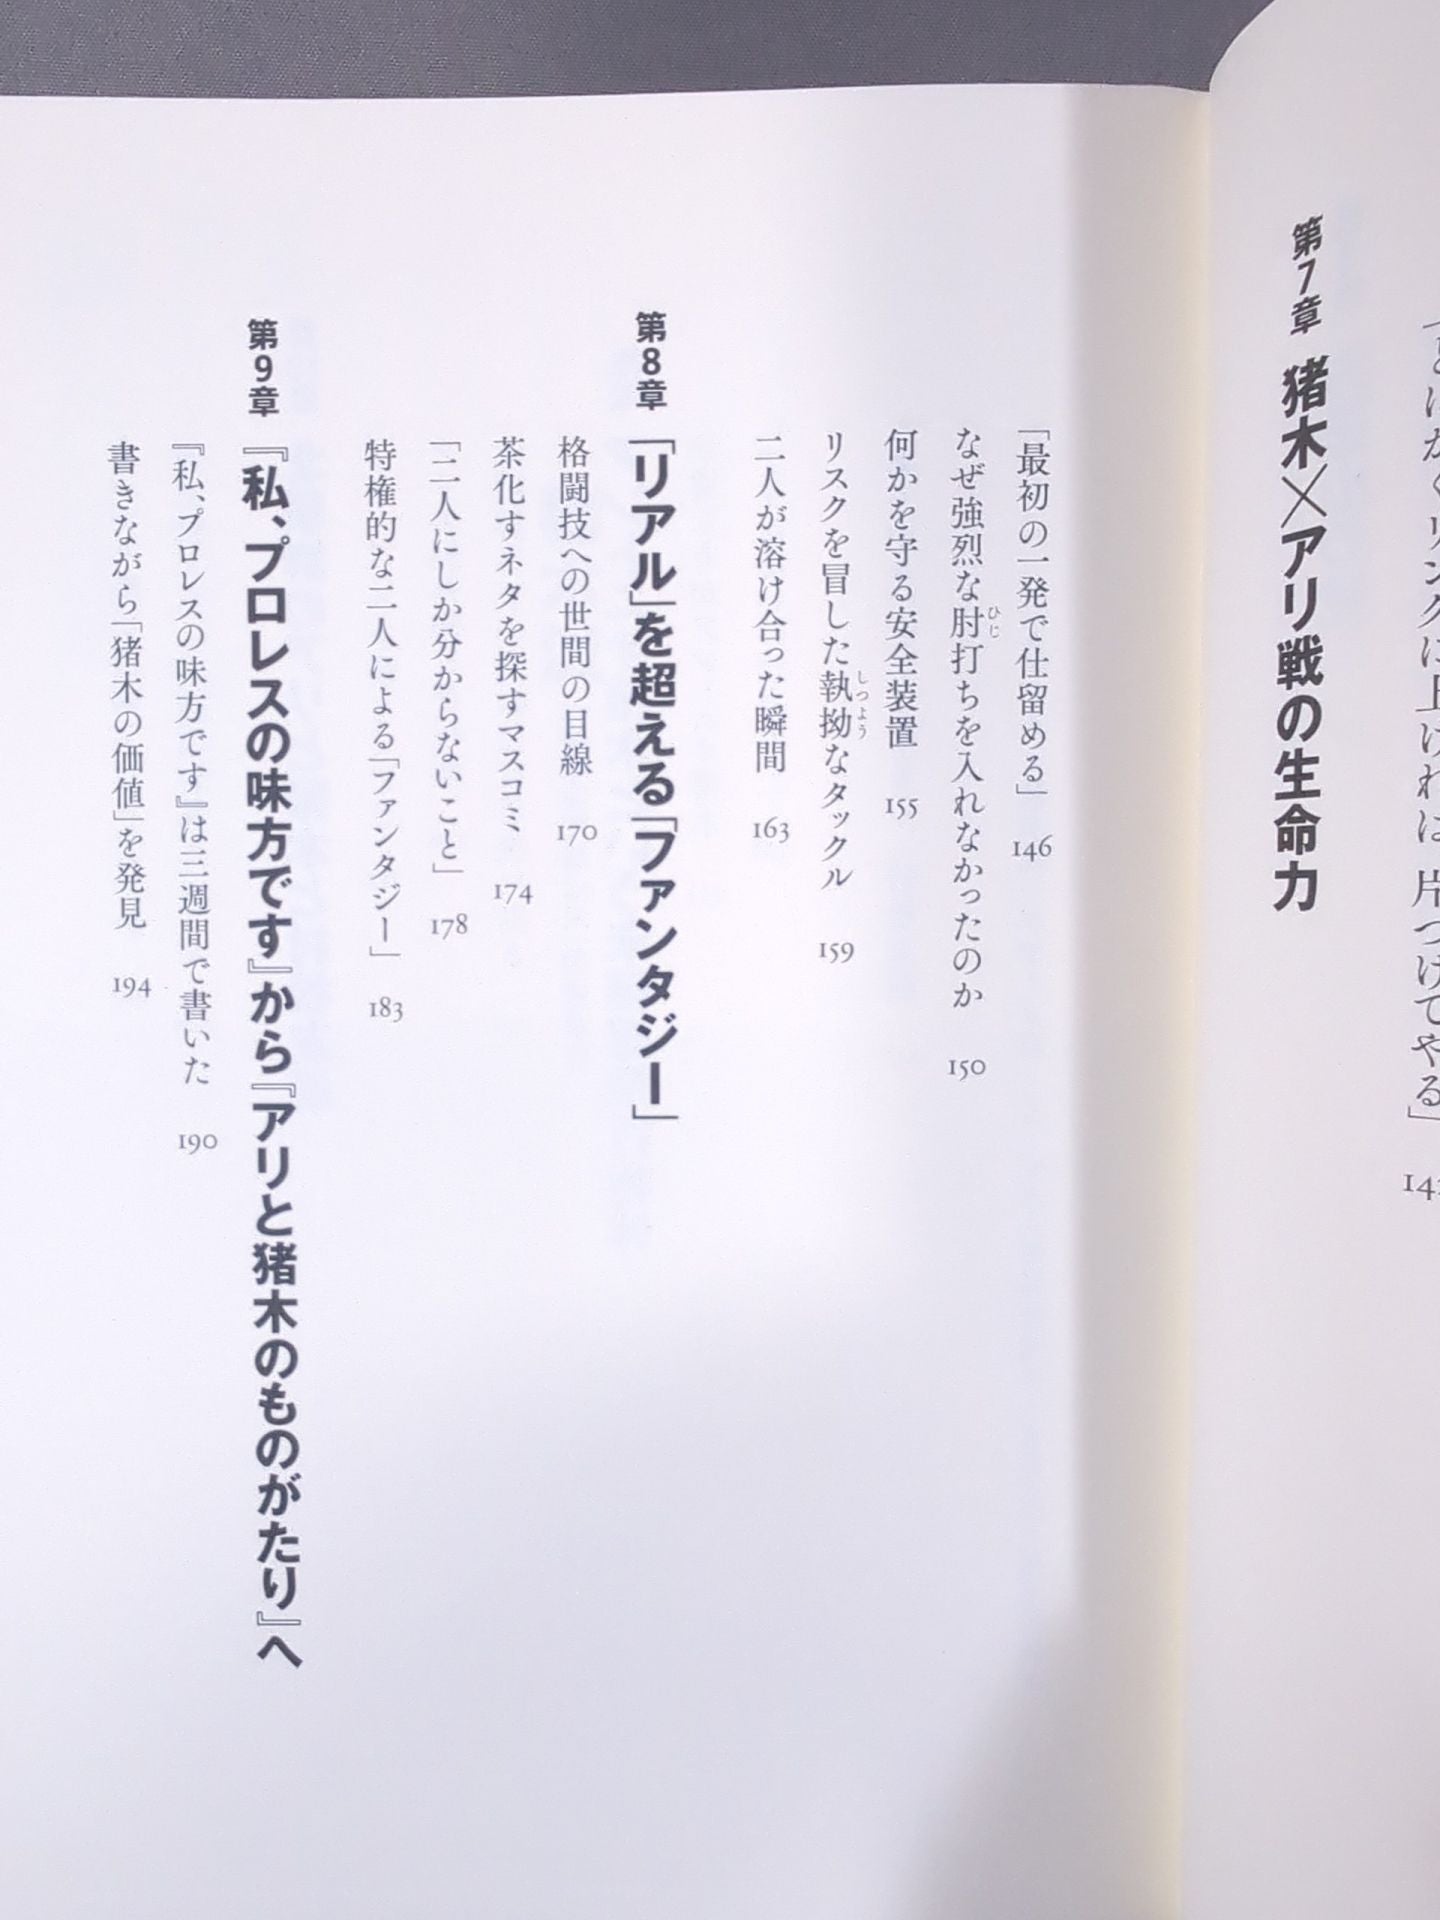 「とにかくリングに上げれば 片つけてやる」
第7章 猪木×アリ戦の生命力
「最初の一発で仕留める」 146
なぜ強烈な肘打ちを入れなかったのか 150
ひじ
何かを守る安全装置 155
リスクを冒した執拗なタックル 159
しつよう
二人が溶け合った瞬間 163
第8章 「リアル」を超える「ファンタジー」
格闘技への世間の目線 170
茶化すネタを探すマスコミ 174
「二人にしか分からないこと」 178
特権的な二人による「ファンタジー」 183
第9章 『私、プロレスの味方です』から『アリと猪木のものがたり』へ
『私、プロレスの味方です』は三週間で書いた 190
書きながら「猪木の価値」を発見 194